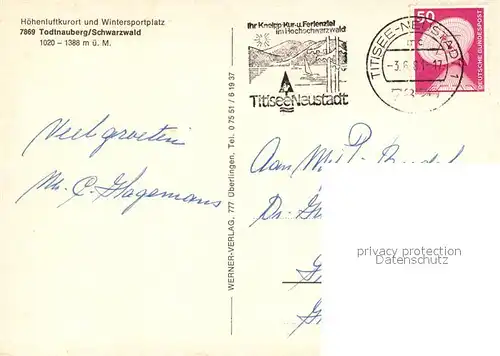 Höhenluftkurort und Wintersportplatz
7869 Todtnauberg/Schwarzwald
1020 – 1388 m ü. M.
Veel groeten
Mr. C. Hagemans
WERNER-VERLAG, 777 Überlingen, Tel. 0 75 51 / 6 19 37
Ihr Kneipp Kur- u. Ferienziel
im Hochschwarzwald
Titisee Neustadt
TITISEE-NEUSTADT 1
50
DEUTSCHE BUNDESPOST
Aan
Dr.
privacy protection
Datenschutz